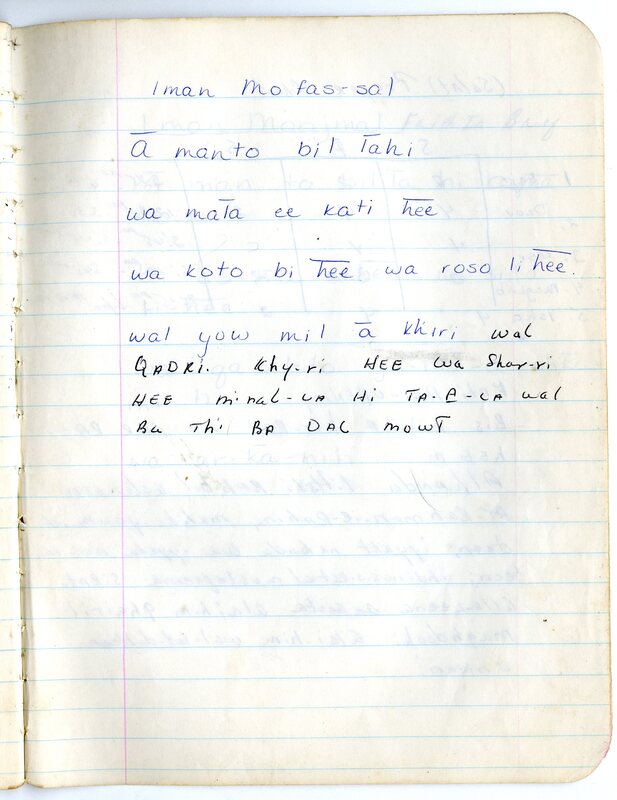 Iman Mofas-sal
Ā manto bil l̄ahi
wa mal̄a ee kati h̄ee
wa koto bi h̄ee wa roso li h̄ee
wal yow mil ā khiri wal
QADRi. Khy-ri HEE wa Shar-ri
HEE minal-LA Hi TA-A-LA wal
Ba Thi BA DAL mowT